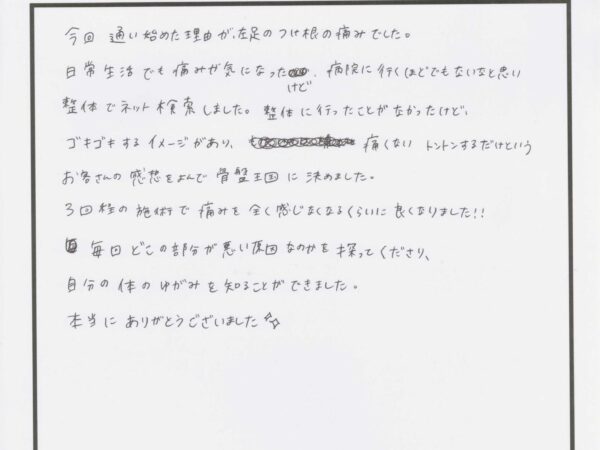 今回 通い始めた理由が、左足のつけ根の痛みでした。
日常生活でも痛みが気になったけど、病院に行くほどでもないなと思い
整体でネット検索しました。整体に行ったことがなかったけど、
ゴキゴキするイメージがあり、痛くない トントンするだけという
お客さんの感想をよんで骨盤王国に決めました。
3回程の施術で痛みを全く感じなくなるくらいに良くなりました!!
毎回どこの部分が悪い原因なのかを探ってくださり、
自分の体のゆがみを知ることができました。
本当にありがとうございました